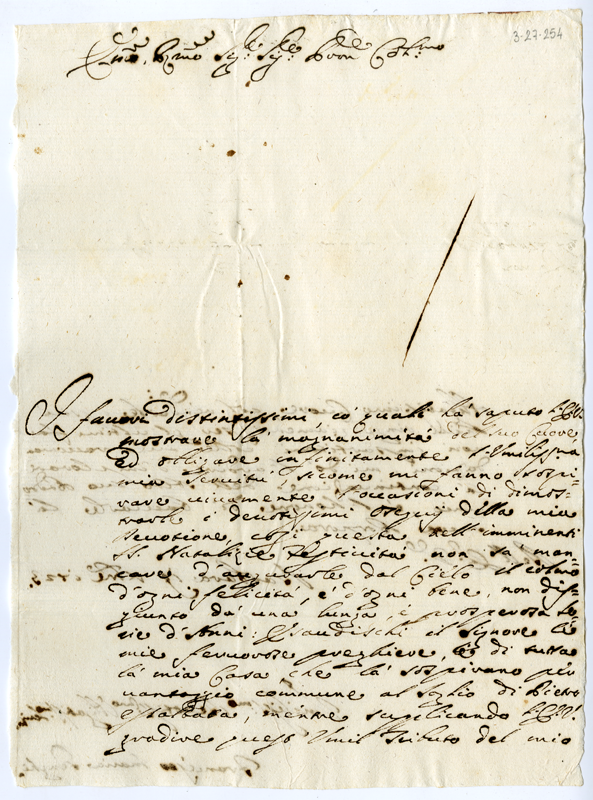 3-27-254
Em.mo, R.mo Sig.r Sig.r Pron Col.mo
I favori distintissimi, co' quali hà saputo V.Em.
mostrare la magnanimità del suo Cuore,
ed obligare infinitamente l'Umilissima
mia servitù, sicome mi fanno sospi-
rare vivamente l'occasioni di dimos-
trarle i devotissimi ossequij della mia
devotione, così questa dell'imminenti
SS. Natalizie Festività non sa man-
care d'augurarle dal Cielo il colmo
d'ogni felicità, e d'ogni bene, non dis-
giunto da una lunga, e prosperosa se-
rie d'Anni. Esaudischi il Signore le
mie fervorose preghiere, e di tutta
la mia Casa che la sospirano per
vantaggio commune al soglio di Pietro
esaltata, mentre suplicando V.Em.
gradire questo Umil tributo del mio